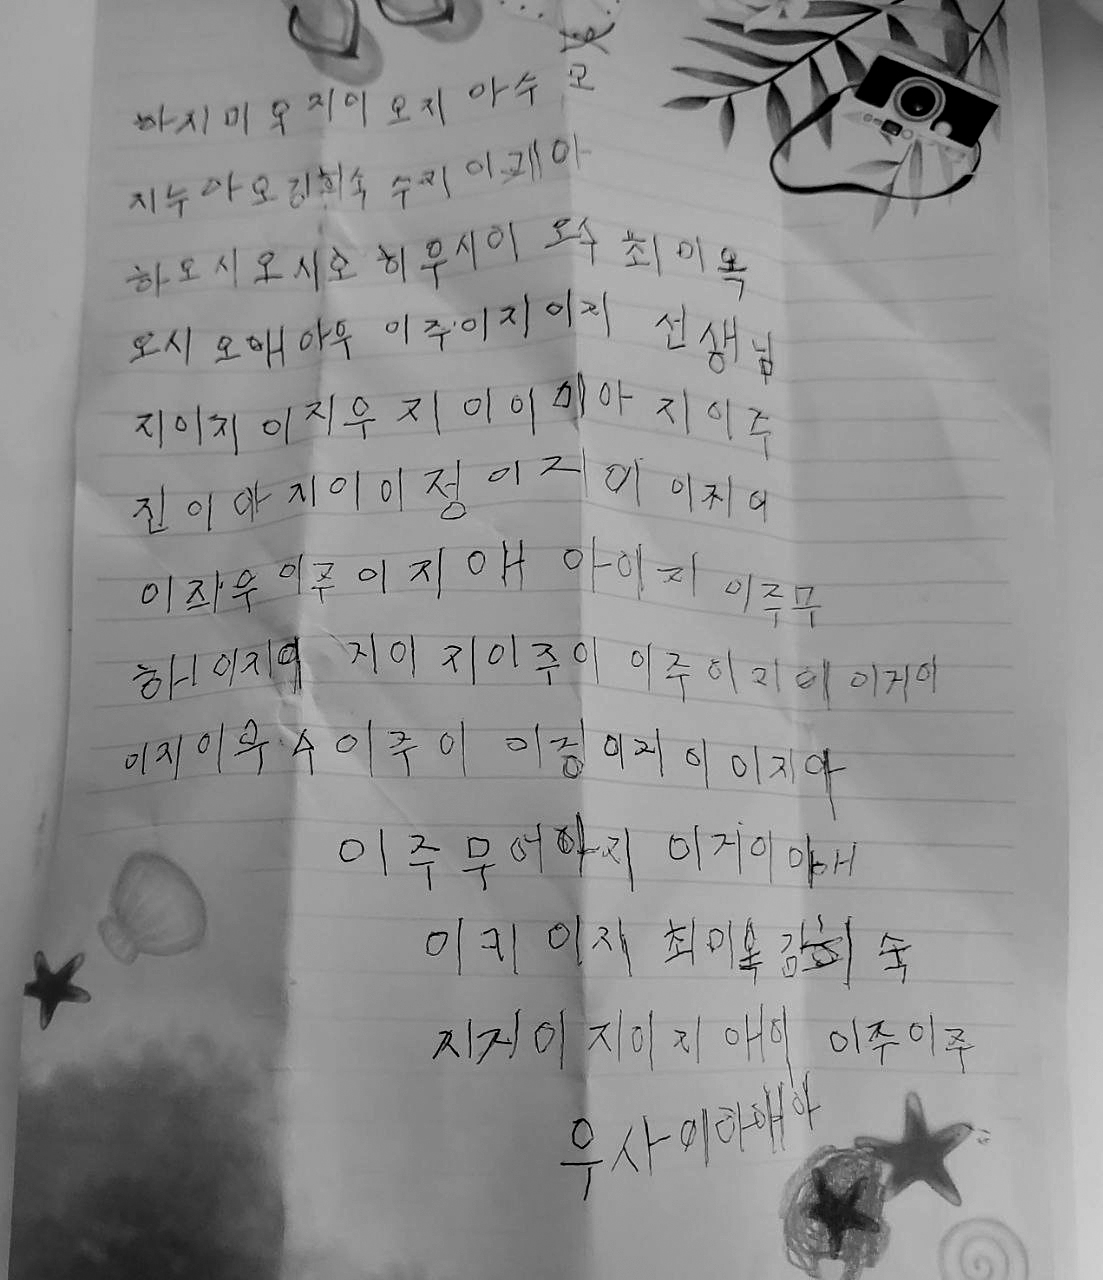 하지미우지이 오지 아수 모
지누아오김희숙 수지 이래아
하오시오시호 히우시이 오수 최미옥
오시 오애 아우 이주이지이지 선생님
지이지이지우지이이미아 지이주
진이아지이이정이지이 이지이
이좌우이주이지애 아이지 이주무
하니이지여 지이 지이주이 이주이지에이거이
이지이우수이주이 이정이지이이지아
이주무어아지 이거이아애
이키이자 최미옥김희숙
지지이지이지애이 이주이주
우사이하해아